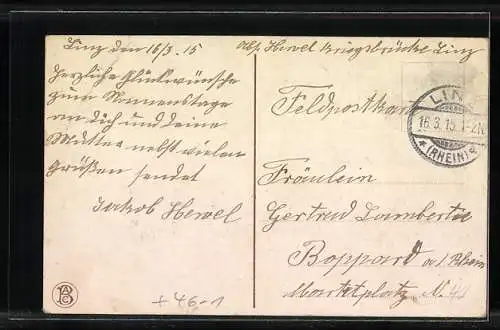 Linz den 16/3. 15
Herzliche Glückwünsche
zum Namenstage
an dich und deine
Mutter nebst vielen
Grüßen sendet
Jakob Hewel
Abs. Hewel Kriegsbrücke Linz
Feldpostkarte
LINZ
16.3.15.1-2N
(RHEIN)
Fräulein
Gertrud Lambertin
Boppard a./Rhein
Marktplatz N.
BAC
+46-1